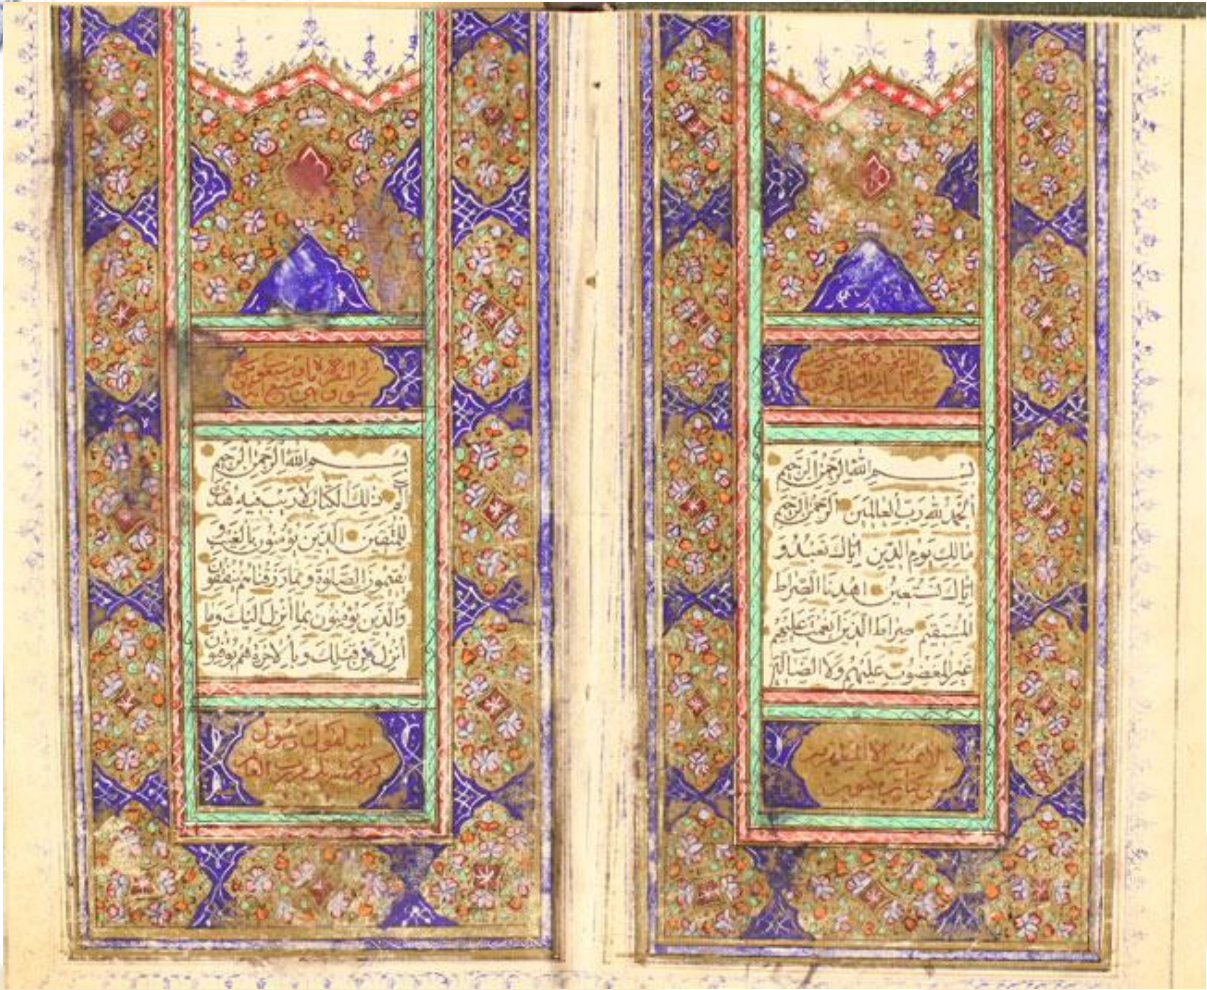 بسم الله الرحمن الرحيم
الحمد لله رب العالمين الرحمن الرحيم
مالك يوم الدين اياك نعبد و
اياك نستعين اهدنا الصراط
المستقيم صراط الذين انعمت عليهم
غير المغضوب عليهم ولا الضالين
لا يمسه الا المطهرون
بسم الله الرحمن الرحيم
الم ذلك الكتاب لا ريب فيه هدى
للمتقين الذين يؤمنون بالغيب و
يقيمون الصلوة ومما رزقناهم ينفقون
والذين يؤمنون بما أنزل اليك وما
أنزل من قبلك وبالاخرة هم يوقنون
انه لقول رسول